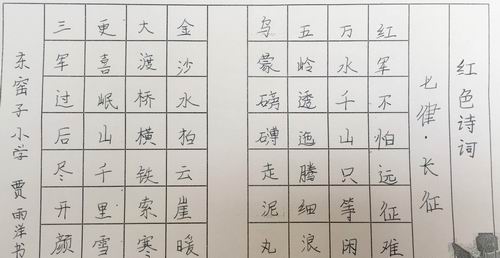 红色诗词
七律·长征
红军不怕远征难
万水千山只等闲
五岭透迤腾细浪
乌蒙磅礴走泥丸
金沙水拍云崖暖
大渡桥横铁索寒
更喜岷山千里雪
三军过后尽开颜
东窑子小学 贾雨洋书